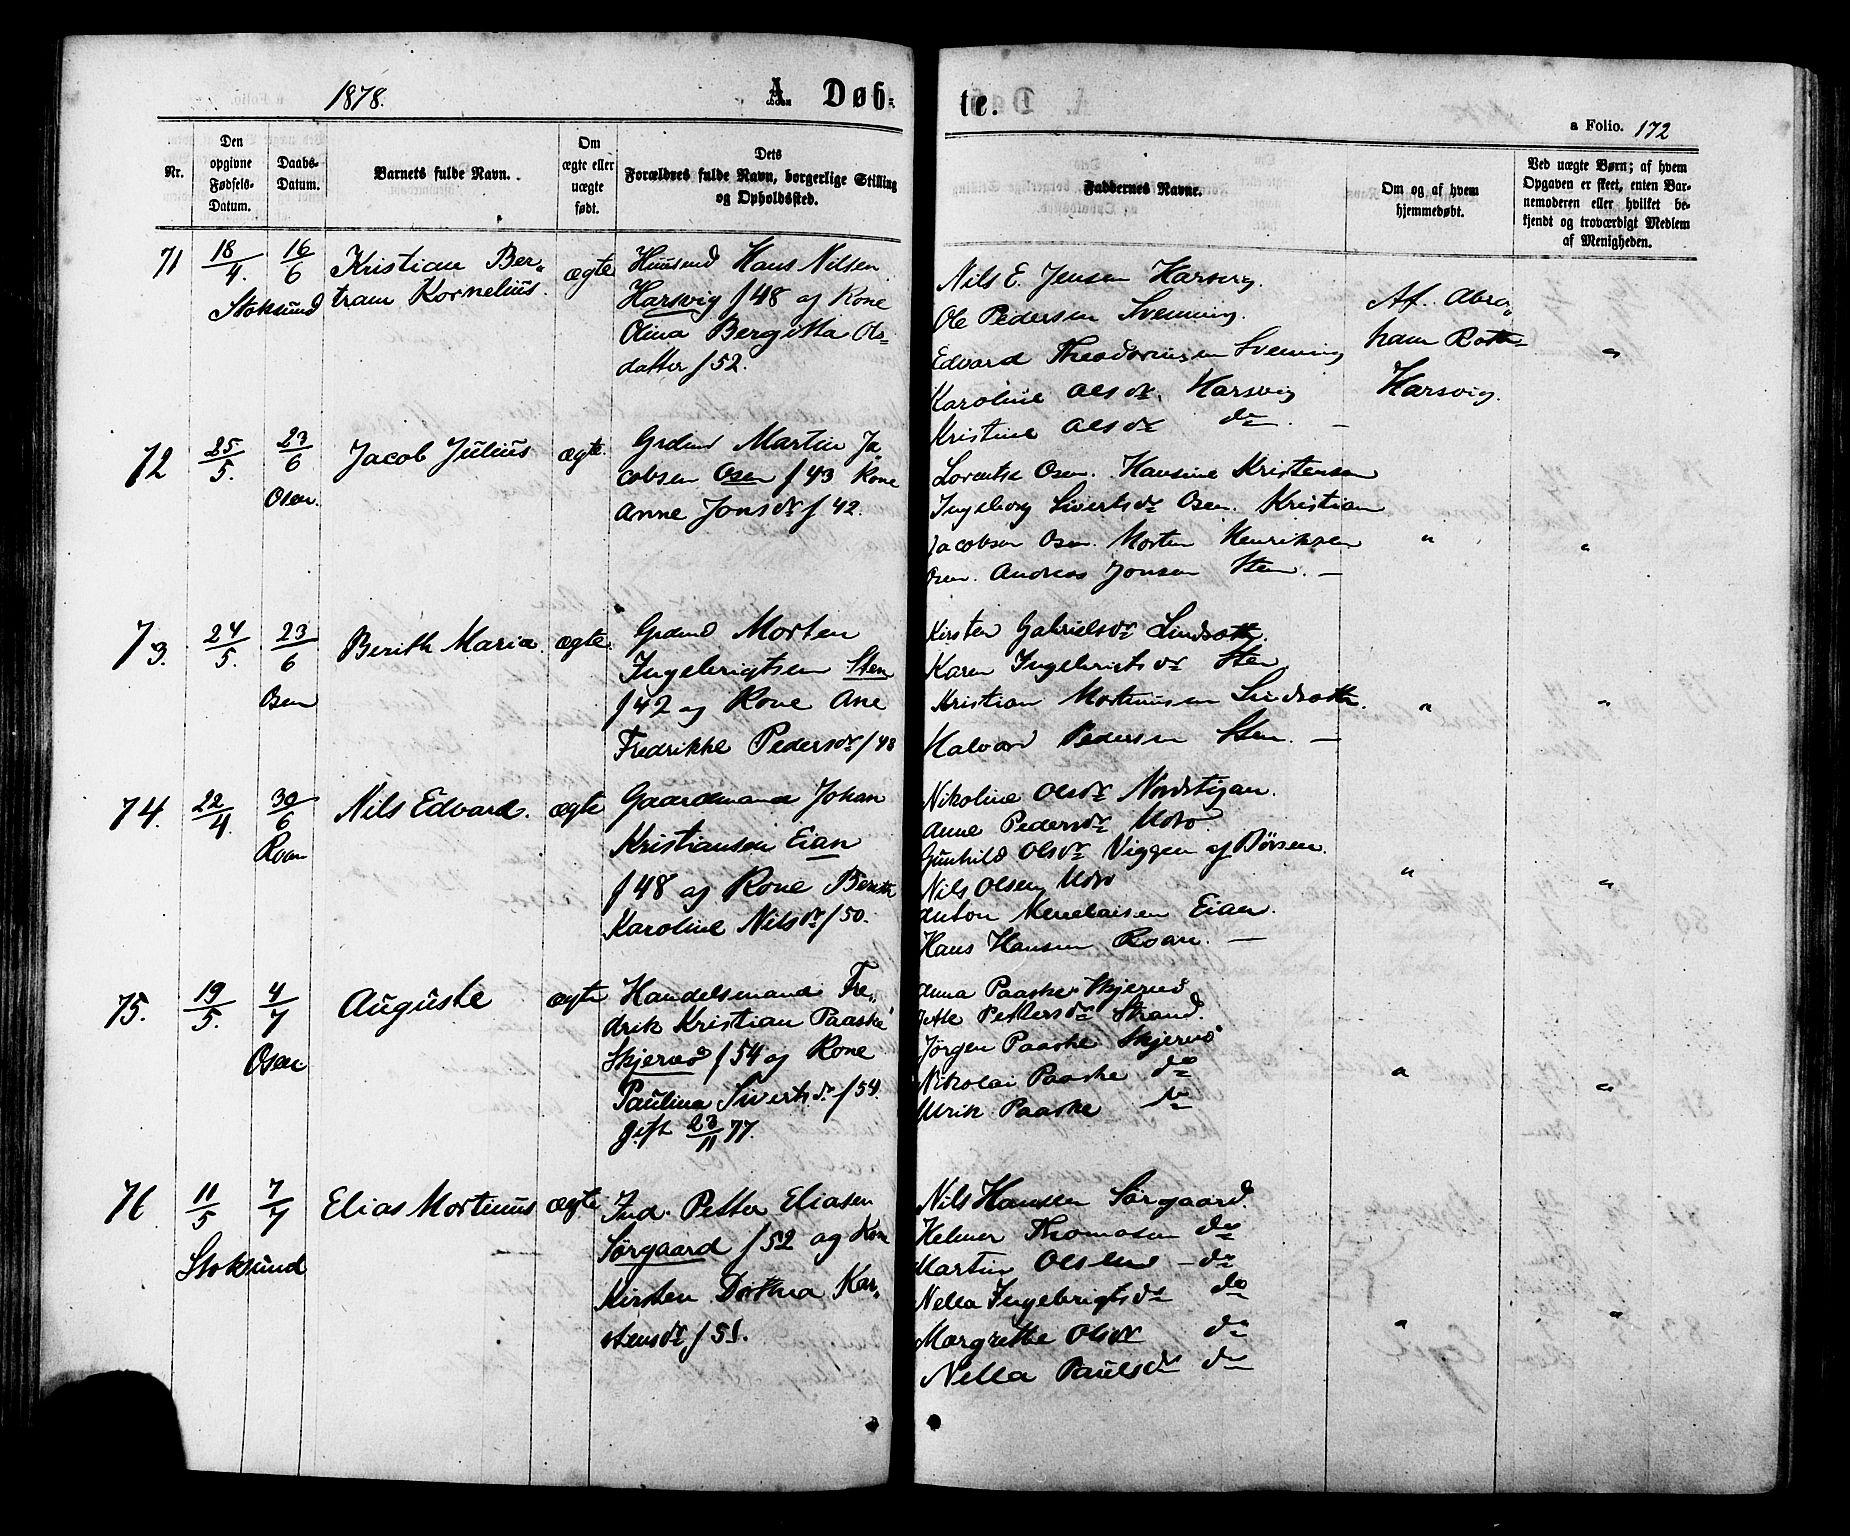 1878.
A Døb-
te.
a Folio. 172
Nr.
Den opgivne Fødsels-Datum.
Daabs-Datum.
Barnets fulde Navn.
Om ægte eller uægte født.
Dets Forældres fulde Navn, borgerlige Stilling og Opholdssted.
Faddernes Navne.
Om og af hvem hjemmedøbt.
Ved uægte Børn; af hvem Opgaven er skeet, enten Barnemoderen eller hvilket bekjendt og troværdigt Medlem af Menigheden.
71 18/4. 16/6 Stoksund
Kristian Ber-
tram Kornelius.
ægte
Huusmd Hans Nilsen
Harsvig f 48 og Kone
Olina Bergitta Ols-
datter f 52.
Nils E. Jensen Harsvig.
Ole Pedersen Svenning.
Edvard Theodorinsen Svenning
Karoline Olsdr. Harsvig
Kristine Olsdr do. —
Af. Abra-
ham
Harsvig.
"
72 25/5. 23/6 Osen.
Jacob Julius
ægte.
Grdmd Martin Ja-
cobsen Osen f 43 Kone
Anne Jonsdr f 42.
Lorentse Osen. Hansine Kristensen
Ingeborg Sivertsdr Osen. Kristian
Jacobsen Osen. Morten Henriksen
Osen. Andreas Jonsen Sten. —
"
"
73. 24/5. 23/6 Osen
Berith Maria.
ægte.
Grdmd Morten
Ingebrigtsen Sten
f 42 og Kone Ane
Fredrikke Pedersdr f 48
Kirsten Gabrielsdr
Karen Ingebrigtsdr Sten
Kristian Mortinusen
Halvard Pedersen Sten. —
"
"
74. 22/4. 30/6 Roan
Nils Edvard.
ægte
Gaardmand Johan
Kristiansen Eian
f 48 og Kone Berith
Karoline Nilsdr f 50.
Nikoline Olsdr Nordstigan.
Anne Pedersdr Utro.
Gunhild Olsdr Viggen af Børsen.
Nils Olsen Utro
Anton Menelaisen Eian.
Hans Hansen Roan. —
"
"
75. 19/5. 4/7 Osen
Auguste
ægte
Handelsmand Fre-
drik Kristian Paaske
Skjervø f 54 og Kone
Paulina Sivertsdr f 54.
gift 23/11 77.
Anna Paaske Skjervø
Jette Pettersdr Strand.
Jørgen Paaske Skjervø
Nikolai Paaske do
Ulrik Paaske do
"
"
76 11/5 7/7 Stoksund
Elias Mortinus
ægte
Ind. Petter Eliasen
Sørgaard f 52 og Kone
Kirsten Dorthea Kar-
stensdr f 51.
Nils Hansen Sørgaard.
Helmer Thomasen do
Martin Olsen — do
Nella Ingebrigtsdr do
Margrethe Olsdr do
Nella Paulsdr do
"
"